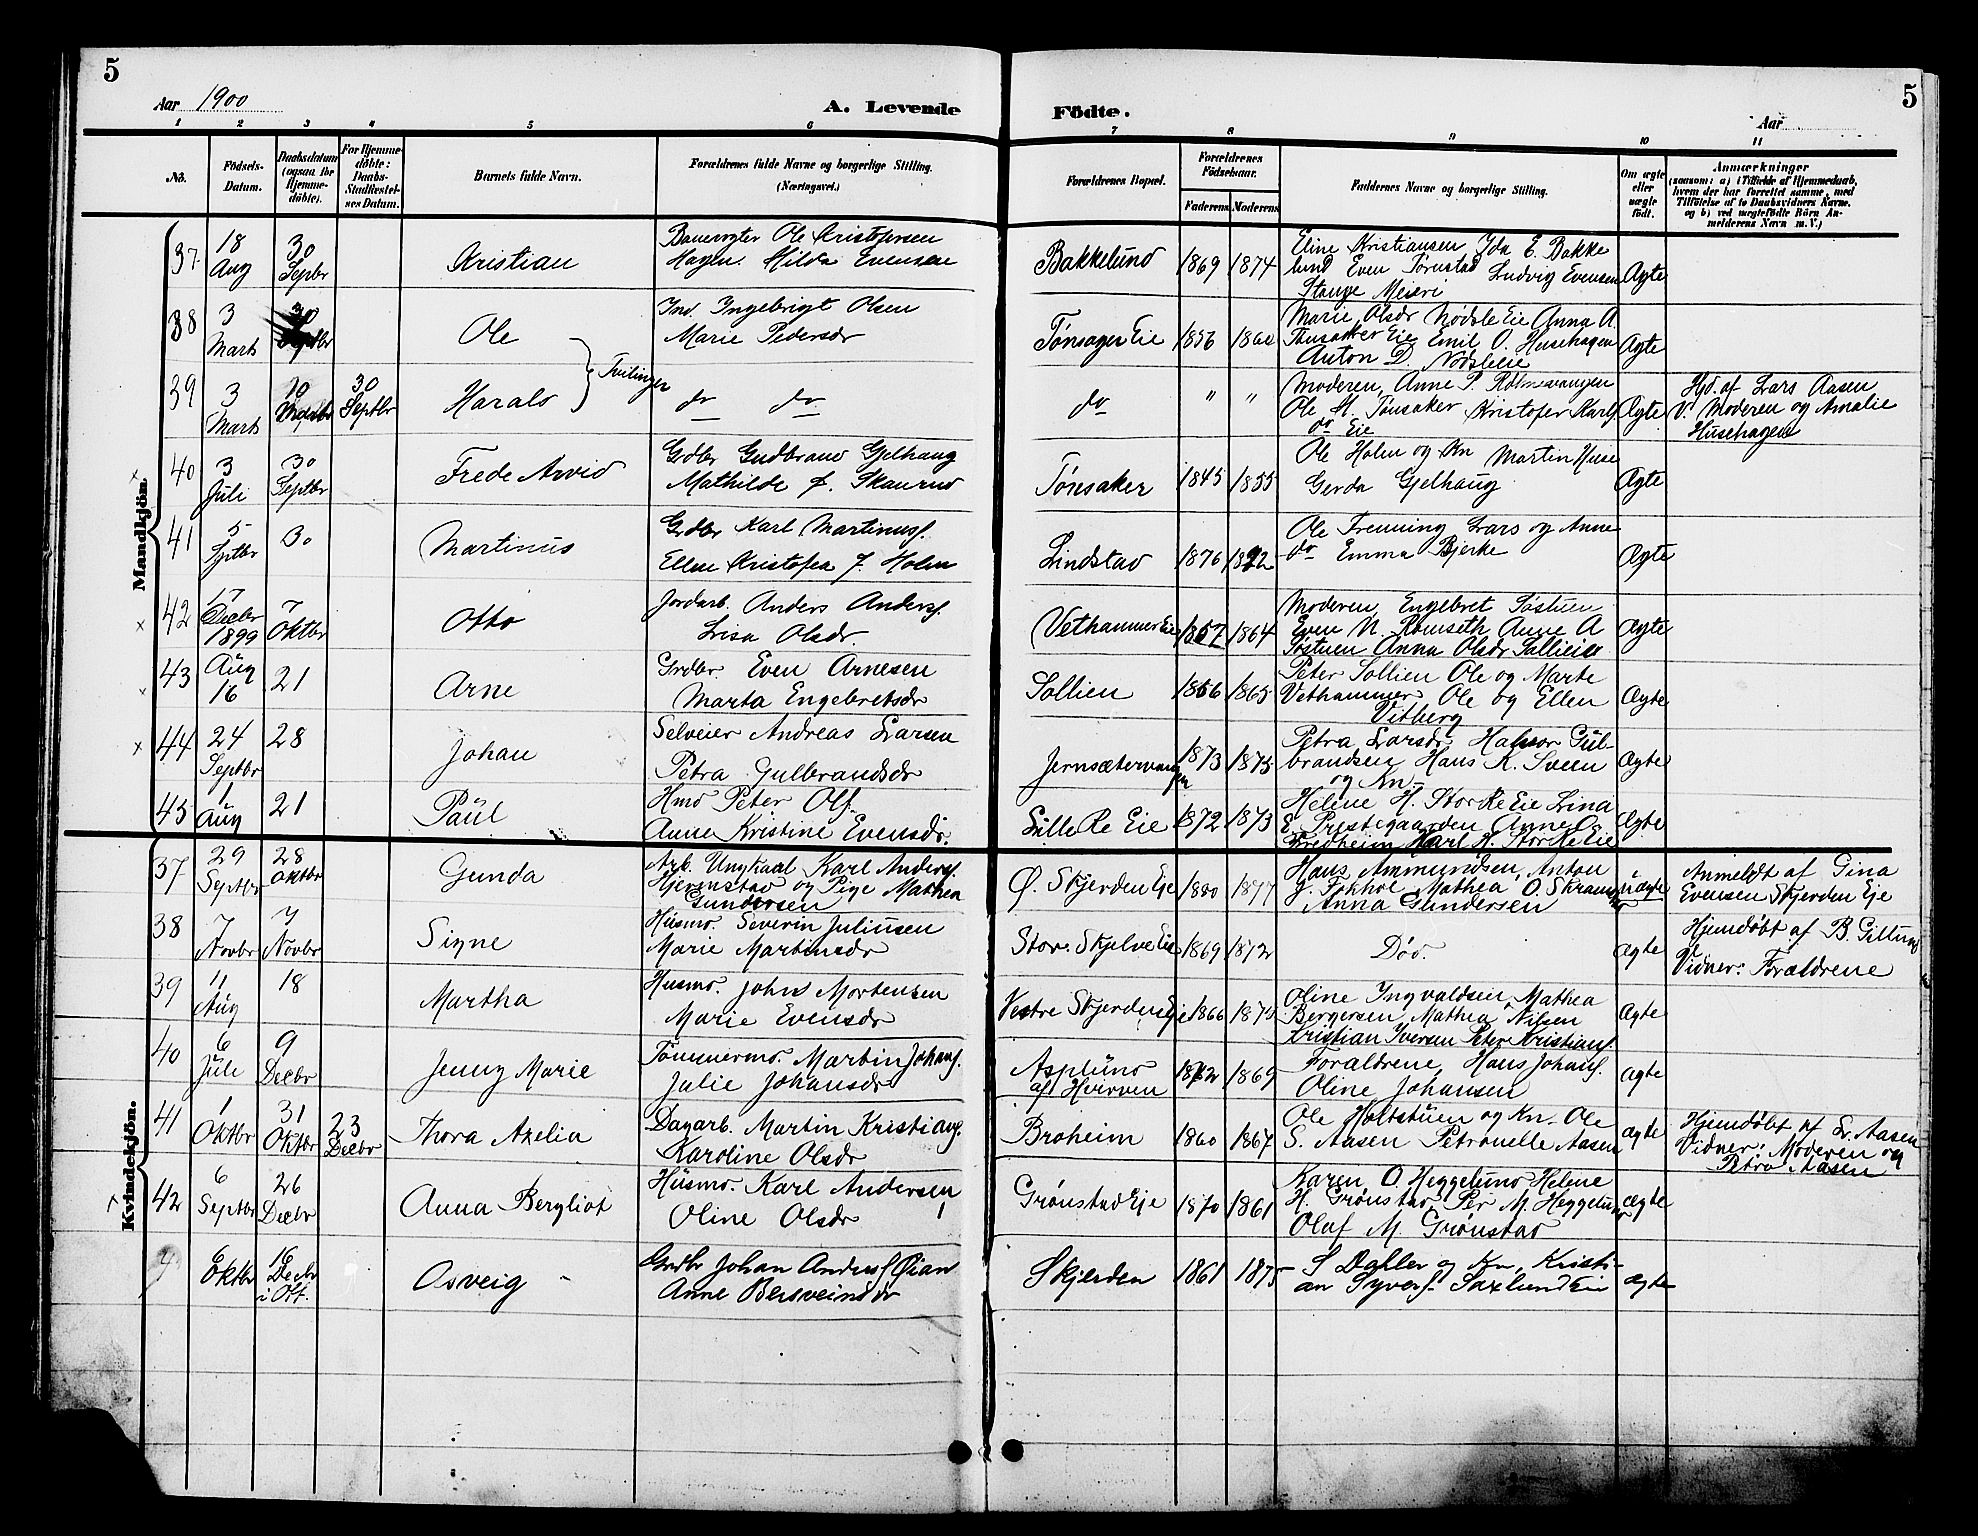 5
5
Aar 1900
A. Levende
Födte.
Aar
1 2 3 4 5 6 7 8 9 10 11
No.
Födsels-Datum.
Daabsdatum (ogsaa for Hjemme-döbte).
For Hjemme-döbte: Daabs-Stadfæstel-ses Datum.
Barnets fulde Navn.
Forældrenes fulde Navne og borgerlige Stilling.
(Næringsvei.)
Forældrenes Bopæl.
Forældrenes Födselsaar.
Faderens Moderens
Faddernes Navne og borgerlige Stilling.
Om ægte eller uægte födt.
Anmærkninger
(saasom: a) i Tilfælde af Hjemmedaab,
hvem der har forrettet samme, med
Tilföielse af to Daabsvidners Navne.
og b) ved uægtefödte Börn An-
melderens Navn m. V.)
Mandkjön.
37 18 Aug 30 Septbr Kristian
Banevogter Ole Kristofersen
Hagen. Hilda Evensen
Bakkelund 1869 1874
Eline Kristiansen Ida E. Bakke
lund Even Tørustad Ludvig Evensen
Stange Meieri
Ægte
38 3 Marts 30 Septbr Ole
Ind. Ingebrigt Olsen
Marie Pedersdr
Tønsager Eie 1856 1860
Marie Olsdr Nødsle Eie Anna A.
Tønsaker Eie Emil O. Husehagen
Anton D Nødsleeie
Ægte
Tvilinger
39 3 Marts 10 Marts 30 Septbr Harald
do do
do " "
Moderen, Anne P.
Ole H. Tønsaker Kristofer Karlsf
do Eie
Ægte
Hjd. af Lars Aasen
V. Moderen og Amalie
Husehagen
40 3 Juli 30 Septbr Frede Arvid
Grdbr Gudbrand Gjelhaug
Mathilde f. Skaurud
Tønsaker 1845 1855
Ole Holen og Kn Martin Huse
Gerda Gjelhaug
Ægte
41 5 Septbr 30 Martinus
Grdbr Karl Martinusf.
Ellen Kristofea f. Holm
Lindstad 1876
Ole Frenning Lars og Anne
do Emma Bjerke
Ægte
42 17 Decbr 1899 7 Oktbr Otto
Jordarb. Anders Andersf.
Lisa Olsdr
Vethammer Eie 1857 1864
Moderen, Engebret Søstuen
Even N. Romseth Anne A
Søstuen Anna Olsdr Sollieie
Ægte
43 Aug 16 21 Arne
Grdbr. Even Arnesen
Marta Engebretsdr
Sollien 1856 1865
Peter Sollien Ole og Marte
Vethammer Ole og Ellen
Vitberg
Ægte
44 24 Septbr 28 Johan
Selveier Andreas Larsen
Petra Gulbrandsdr
Jernsætervangen 1873 1875
Petra Larsdr. Halvor Gul-
brandsen Hans K. Sveen
og Kn.
Ægte
45 1 Aug 21 Paul
Hmd Peter Olsf.
Anne Kristine Evensdr.
Lille Re Eie 1872 1873
Helene H. StorRe Eie Lina
E. Prestegaarden Anne O.
Fredheim Karl H. StorRe Eie
Ægte
Kvindekjön.
37 29 Septbr 28 Oktbr Gunda
Arb. Ungkarl Karl Andersf.
Hjermstad og Pige Mathea
Gundersen
Ø. Skjerden Eje 1880 1877
Hans Ammundsen, Anton
J. Mathea O. Skramstad
Anna Gundersen
uægte
Anmeldt af Gina
Evensen Skjerden Eje
38 7 Novbr 7 Novbr Signe
Husmd. Severin Juliusen
Marie Martinsdr
Stor. Skjelve Eie 1869 1872
Død.
ægte
Hjemdøbt af B. Gillund
Vidner: Forældrene
39 11 Aug 18 Martha
Husmd. John Mortensen
Marie Evensdr
Vestre Skjerden Eje 1866 1870
Oline Ingvaldsen, Mathea
Bergersen Mathea Nilsen
Kristian Iversen Peter Kristiansf.
Ægte
40 6 Juli 9 Decbr Jenny Marie
Tømmermd. Martin Johansf.
Julie Johansdr
Asplund
af Hverven 1872 1869
Forældrene, Hans Johansf.
Oline Johansen
ægte
41 1 Oktbr 31 Oktbr 23 Decbr Thora Axelia
Dagarb. Martin Kristiansf.
Karoline Olsdr
Broheim 1860 1867
Ole Holtstuen og Kn. Ole
S. Aasen Petronelle Aasen
ægte
Hjemdøbt af Lr. Aasen
Vidner: Moderen og
Petra Aasen
42 6 Septbr 26 Decbr Anna Bergliot
Husmd. Karl Andersen
Oline Olsdr
Grønstad Eje 1870 1861
Karen O. Heggelund Helene
H. Grønstad, Per M. Heggelund
Olaf M. Grønstad
ægte
6 Oktbr 16 Decbr i Ott. Asveig
Grdbr Johan Andersf Øian
Anne Bersveinsdr
Skjerden 1861 1875
S Dahler og Kn, Kristi-
an Syversf. Saxlund Eie
ægte